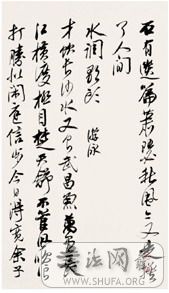 石有遗篇 萧瑟秋风今又是 换
了人间
水调歌头 游泳
才饮长沙水又食武昌鱼万里长
江横渡极目楚天舒不管风吹浪
打胜似闲庭信步今日得宽余 子
书法网
WWW.SHUFA.ORG